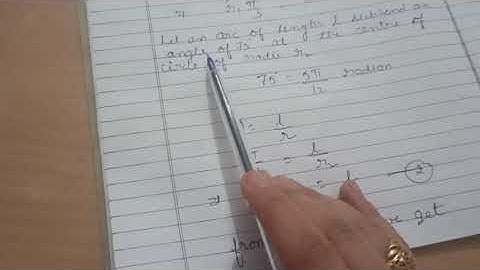 π
Let an arc of length l subtend an
angle of 75 at the centre of
circle of radii r₂
75° = 5π/12 radian
= l/r
= l/r₂
= l — ②
from
we get